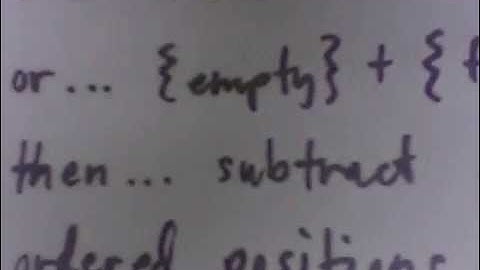 or... {empty} + {
then... subtract
ordered positions